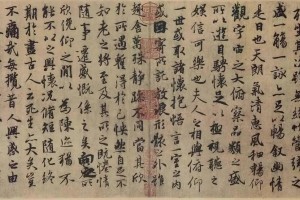 盛一觴一詠亦足以暢敘幽情
是日也天朗氣清惠風和暢仰
觀宇宙之大俯察品類之盛
所以遊目騁懷足以極視聽之
娛信可樂也夫人之相與俯仰
一世或取諸懷抱悟言一室之內
或因寄所託放浪形骸之外雖
趣舍萬殊靜躁不同當其欣
於所遇暫得於己快然自足不
知老之將至及其所之既惓情
隨事遷感慨係之矣向之所
欣俛仰之間以為陳迹猶不
能不以之興懷況脩短隨化終
期於盡古人云死生亦大矣豈
不痛哉每攬昔人興感之由